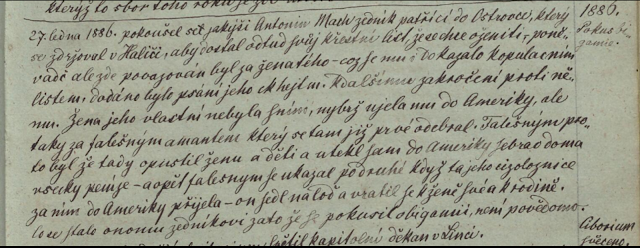 který to sbor toho roku je
1886.
27. ledna 1886. pokoušel se jakýsi Antonín Mach zedník patřící do Ostrovce, který
Pokus bi-
se zdržoval v Haliči, aby dostal odtud svůj křestní list že se chce oženiti, poně-
gamie.
vadž ale zde považován byl za ženatého - což je mu i dokázalo kopulačním
listem, dodáno bylo psaní jeho c. k. hejtm. k dalšímu zakročení proti ně-
mu. Žena jeho vlastní nebyla s ním, nýbrž ujela mu do Ameriky, ale
taky za falešným amantem který se tam již prvé odebral. Falešným pro-
to byl že tady opustil ženu a děti a utekl sám do Ameriky sebrav doma
všecky peníze - a opět falešným se ukázal podruhé když ta jeho cizoložnice
za ním do Ameriky přijela - on sedl na loď a vrátil se k ženě a k rodině.
Co se stalo onomu zedníkovi za to že se pokusil o bigamii, není povědomo.
Ciborium
kapitolní děkan v Linci.
svěceno.